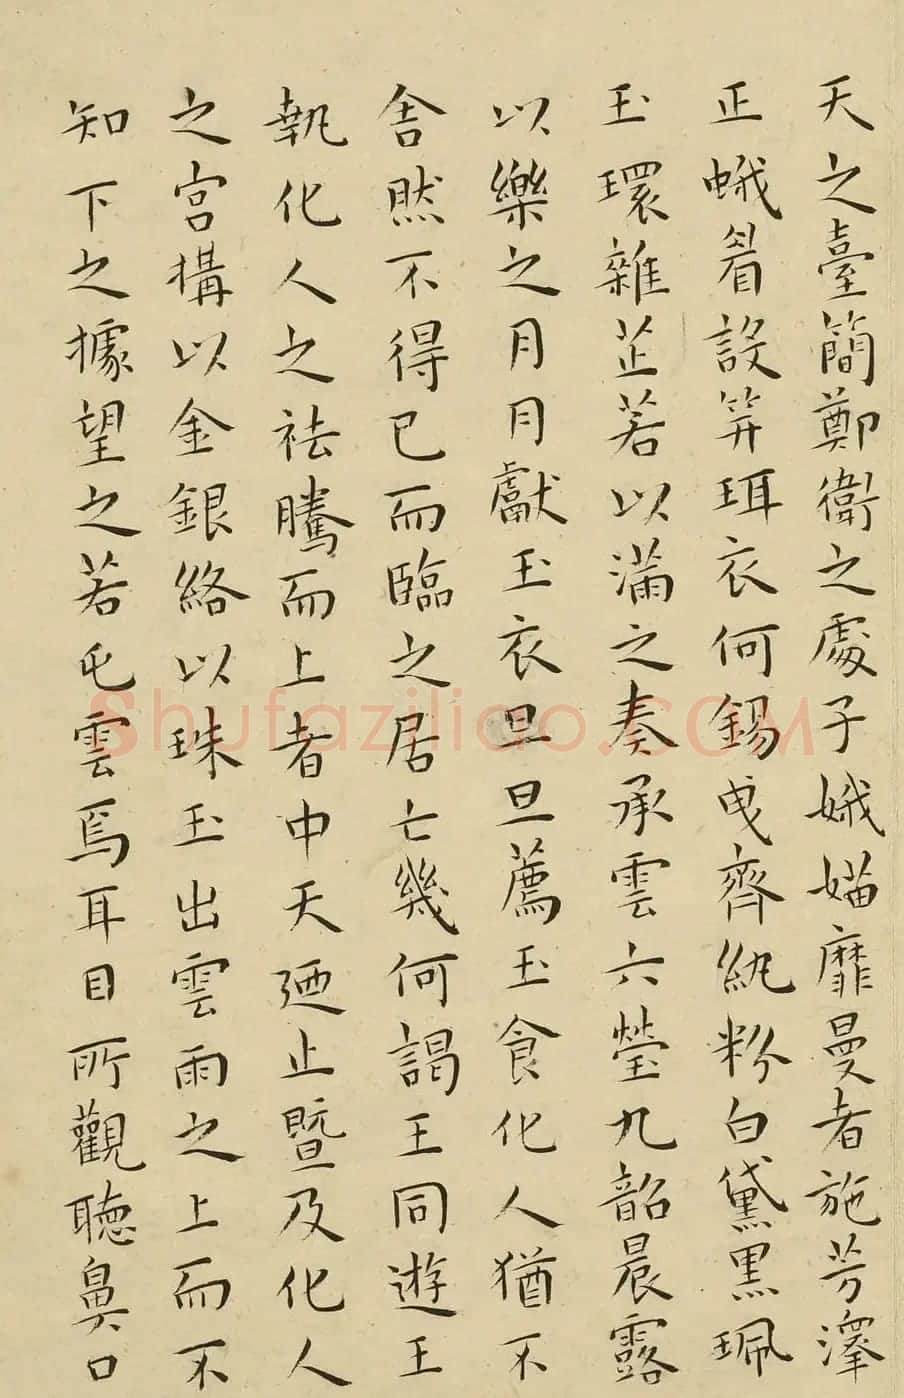 天之臺簡鄭衛之處子娥媌靡曼者施芳澤
正蛾眉設笄珥衣何錫曵齊紈粉白黛黑珮
玉環雜芷若以滿之奏承雲六瑩九韶晨露
以樂之月月獻玉衣旦旦薦玉食化人猶不
舍然不得已而臨之居亡幾何謁王同遊王
執化人之袪騰而上者中天廼止暨及化人
之宮構以金銀絡以珠玉出雲雨之上而不
知下之據望之若屯雲焉耳目所觀聽鼻口
Shufaziliao.COM